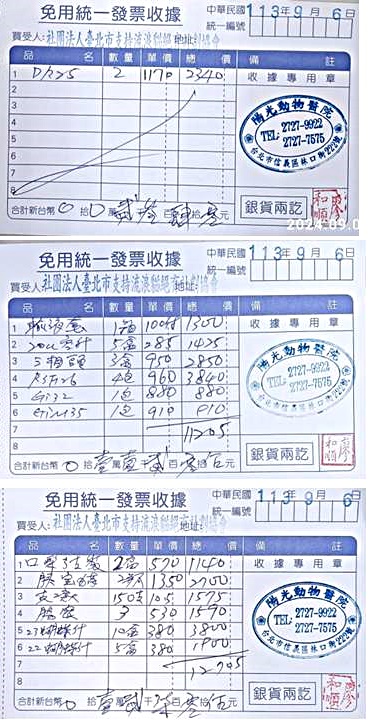 免用統一發票收據
中華民國 113年9月6日
統一編號
買受人:社團法人臺北市支持流浪貓絕育計劃協會 地址:
品 名 數量 單價 總價 備 註
1 D/225 2 1170 2340 收據專用章
2
3
4
5
6
7
8
陽光動物醫院
TEL: 2727-9922
2727-7575
台北市信義區林口街
合計新台幣 0 拾 0 萬 貳 仟 元
銀貨兩訖
廖和順
免用統一發票收據
中華民國 113年9月6日
統一編號
買受人:社團法人臺北市支持流浪貓絕育計劃協會
品 名 數量 單價 總價 備 註
1 1300 收據專用章
2 5盒 285 1425
3 3盒 950 2850
4 4包 960 3840
5 1包 880 880
6 1包 910 910
7 11205
8
陽光動物醫院
TEL: 2727-9922
2727-7575
台北市信義區林口街
合計新台幣 0 拾 壹 萬 壹 仟 貳 百 零 拾 伍 元
銀貨兩訖
廖和順
免用統一發票收據
中華民國 113年9月6日
統一編號
買受人:社團法人臺北市支持流浪貓絕育計劃協會
品 名 數量 單價 總價 備 註
1 570 1140 收據專用章
2 1350 2700
3 150 10.5 1575
4 3 530 1590
5 23蝴蝶針 10盒 380 3800
6 22蝴蝶針 5盒 380 1900
7 12705
8
陽光動物醫院
TEL: 2727-9922
2727-7575
台北市信義區林口街
合計新台幣 0 拾 壹 萬 貳 仟 柒 百 零 拾 伍 元
銀貨兩訖
廖和順